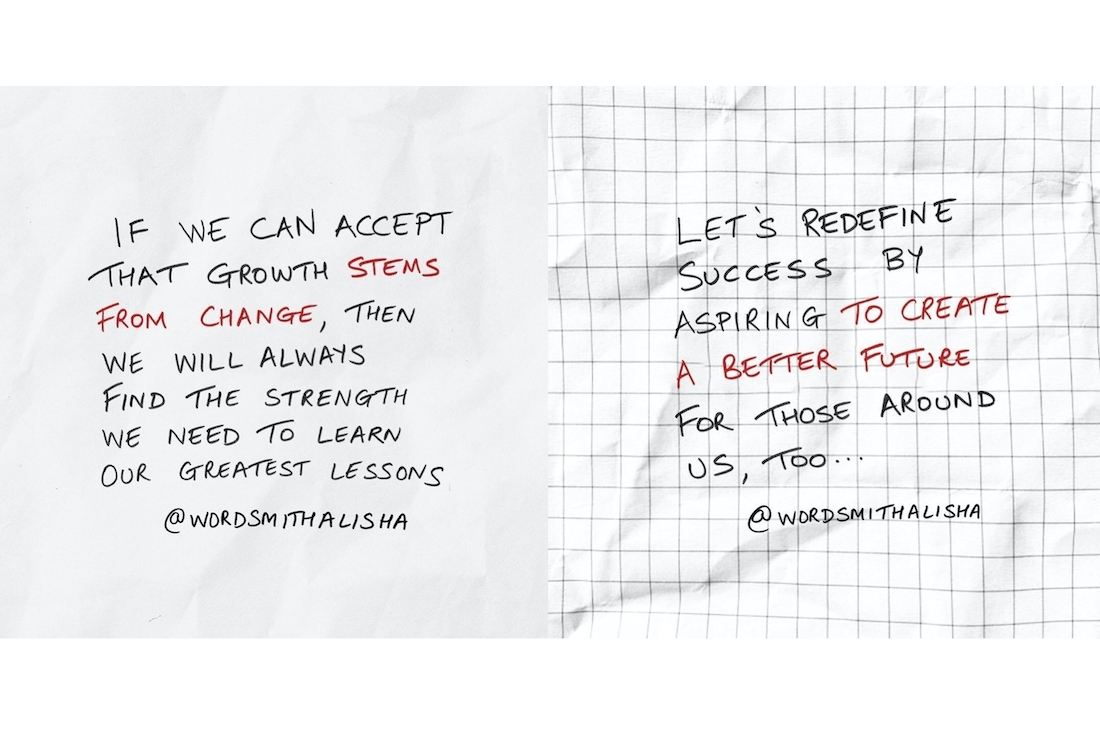 IF WE CAN ACCEPT
THAT GROWTH STEMS
FROM CHANGE, THEN
WE WILL ALWAYS
FIND THE STRENGTH
WE NEED TO LEARN
OUR GREATEST LESSONS
@WORDSMITHALISHA
LET'S REDEFINE
SUCCESS BY
ASPIRING TO CREATE
A BETTER FUTURE
FOR THOSE AROUND
US, TOO...
@WORDSMITHALISHA